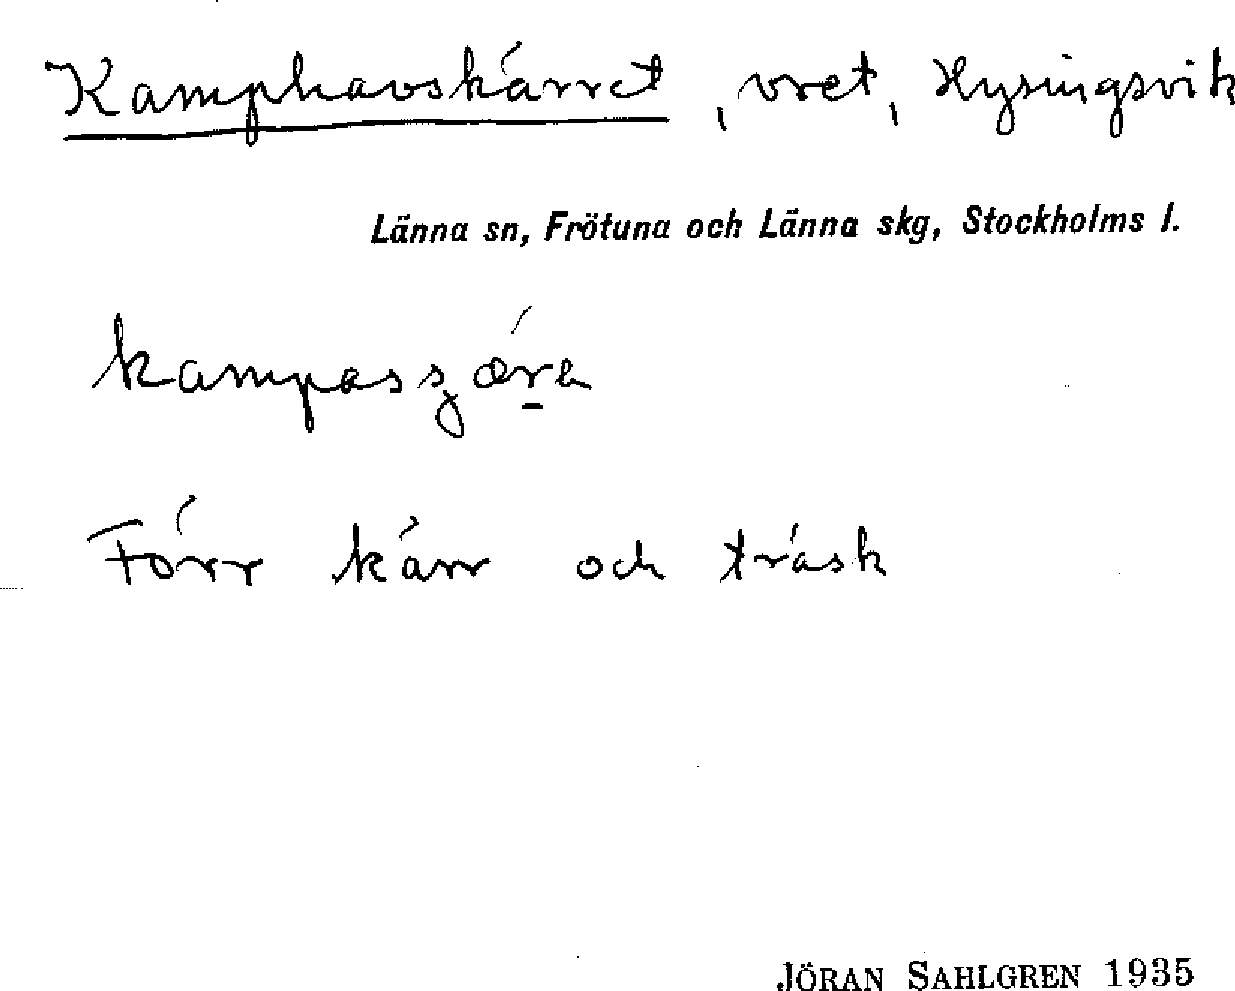 Kamphavskärret, vret, Hysingsvik
Länna sn, Frötuna och Länna skg, Stockholms l.
Förr kärr och träsk
JÖRAN SAHLGREN 1935